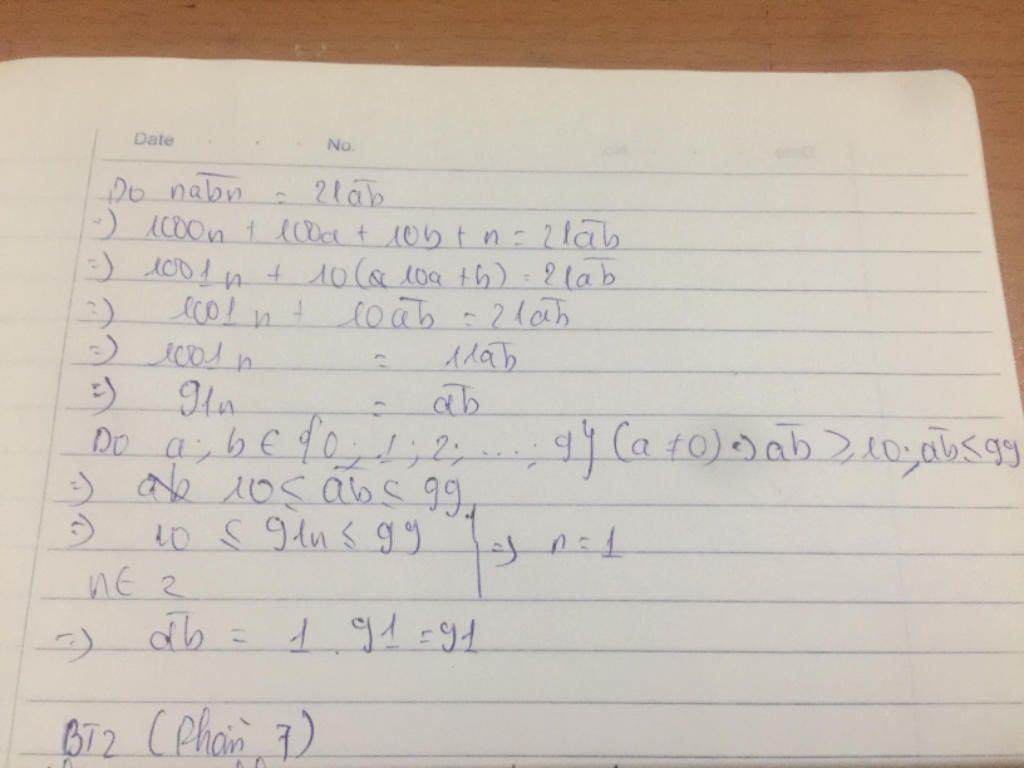 Date No.
Do nabn = 21ab
=) 1000n + 100a + 10b + n = 21ab
=) 1001n + 10(10a + b) = 21ab
=) 1001n + 10ab = 21ab
=) 1001n = 11ab
=) 91n = ab
Do a; b ∈ {0; 1; 2; ...; 9} (a ≠ 0) => ab ≥ 10; ab ≤ 99
=) 10 ≤ ab ≤ 99
=) 10 ≤ 91n ≤ 99 => n = 1
n ∈ Z
=) ab = 1 . 91 = 91
BT2 (Phần 7)